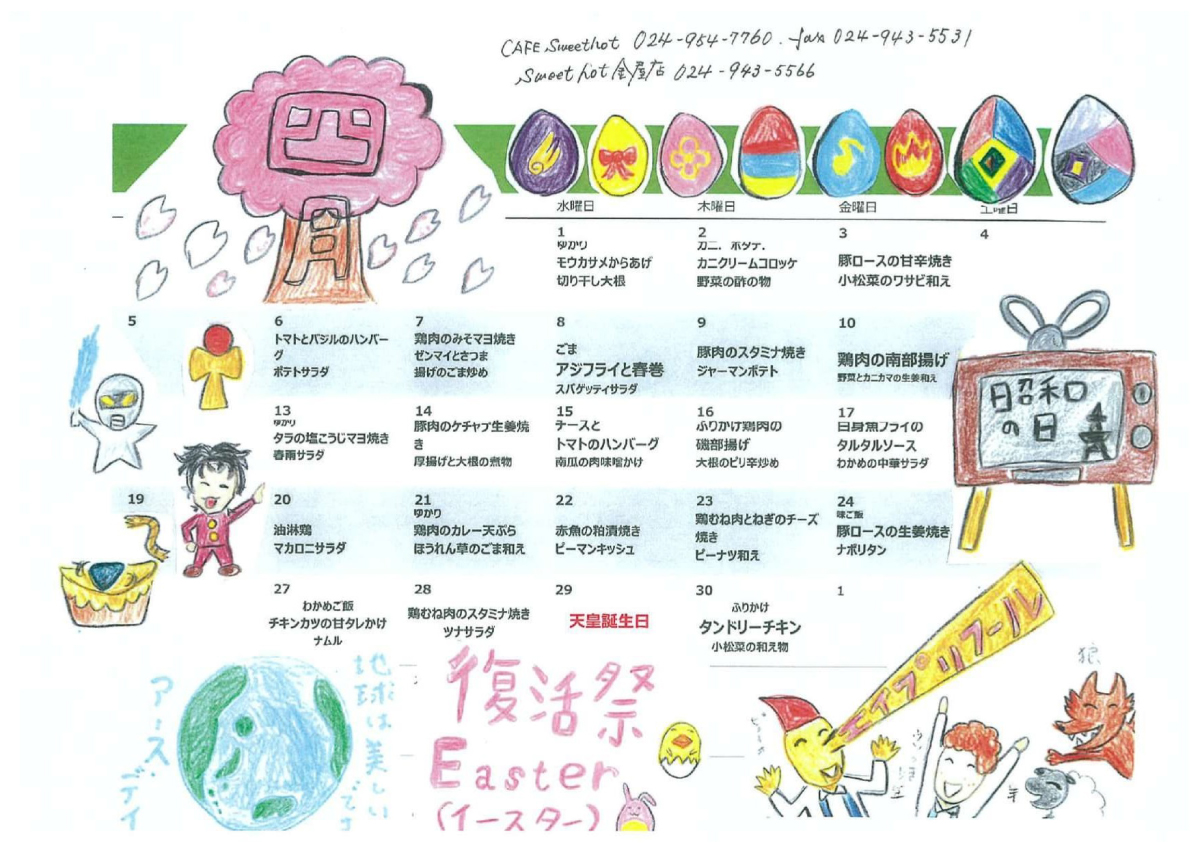 CAFE Sweethot 024-954-7760. fax 024-943-5531
Sweet hot 金屋店 024-943-5566
四月
水曜日 木曜日 金曜日 土曜日
1
ゆかり
モウカサメからあげ
切り干し大根
2
カニ、ホタテ、
カニクリームコロッケ
野菜の酢の物
3
豚ロースの甘辛焼き
小松菜のワサビ和え
4
5
6
トマトとバジルのハンバー
グ
ポテトサラダ
7
鶏肉のみそマヨ焼き
ゼンマイとさつま
揚げのごま炒め
8
ごま
アジフライと春巻
スパゲッティサラダ
9
豚肉のスタミナ焼き
ジャーマンポテト
10
鶏肉の南部揚げ
野菜とカニカマの生姜和え
昭和
の日
13
ゆかり
タラの塩こうじマヨ焼き
春雨サラダ
14
豚肉のケチャプ生姜焼
き
厚揚げと大根の煮物
15
チースと
トマトのハンバーグ
南瓜の肉味噌かけ
16
ふりかけ鶏肉の
磯部揚げ
大根のピリ辛炒め
17
白身魚フライの
タルタルソース
わかめの中華サラダ
19
20
油淋鶏
マカロニサラダ
21
ゆかり
鶏肉のカレー天ぷら
ほうれん草のごま和え
22
赤魚の粕漬焼き
ピーマンキッシュ
23
鶏むね肉とねぎのチーズ
焼き
ピーナツ和え
24
味ご飯
豚ロースの生姜焼き
ナポリタン
27
わかめご飯
チキンカツの甘タレかけ
ナムル
28
鶏むね肉のスタミナ焼き
ツナサラダ
29
天皇誕生日
30
ふりかけ
タンドリーチキン
小松菜の和え物
1
エイプリフール
地球は美しいです
アース・デイ
復活祭
Easter
(イースター)
狼